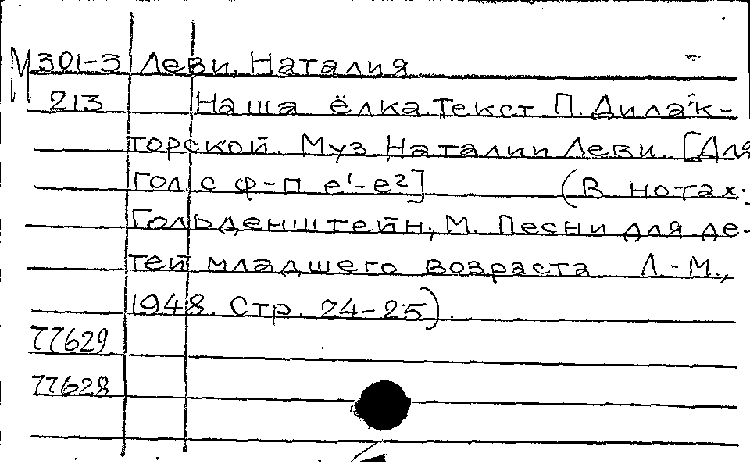 М 301-3 Леви, Наталия
213 Наша ёлка. Текст П. Дилак-
торской. Муз. Наталии Леви. [Для
гол. с ф-п. e¹-e²] (В нотах:
Гольденштейн, М. Песни для де-
тей младшего возраста. Л.-М.,
1948. Стр. 24-25).
77629
77628